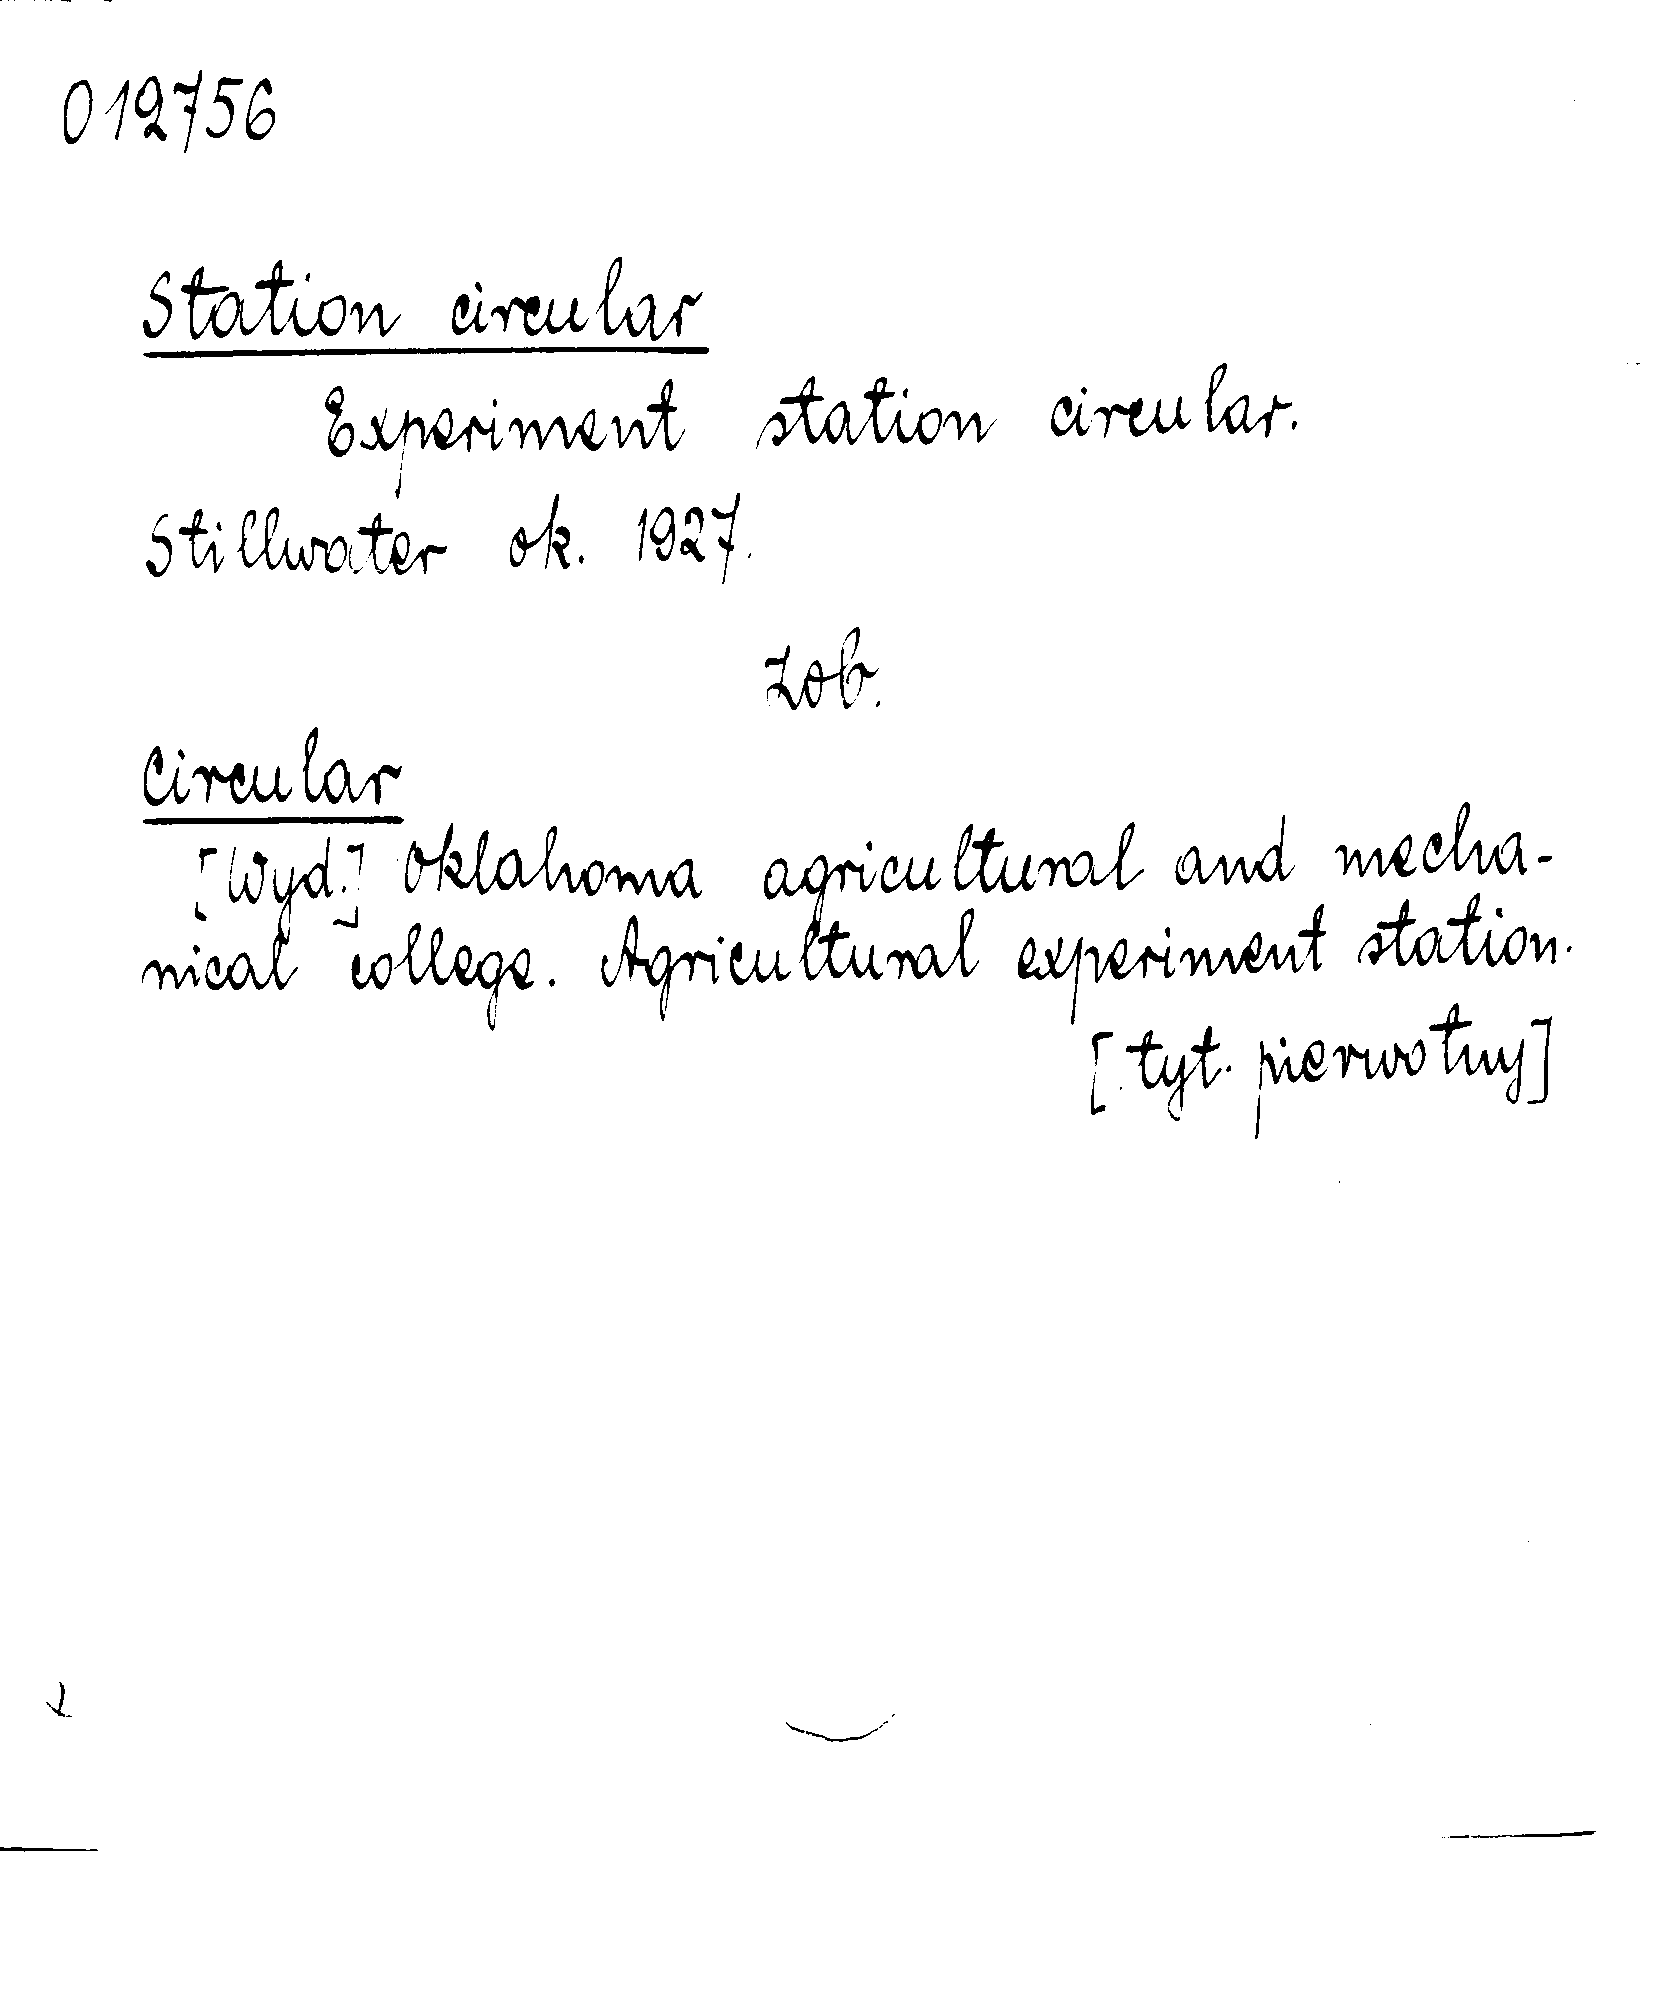 012756
Station circular
Experiment station circular.
Stillwater ok. 1927.
Zob.
Circular
[Wyd.] Oklahoma agricultural and mecha-
nical college. Agricultural experiment station.
[tyt. pierwotny]